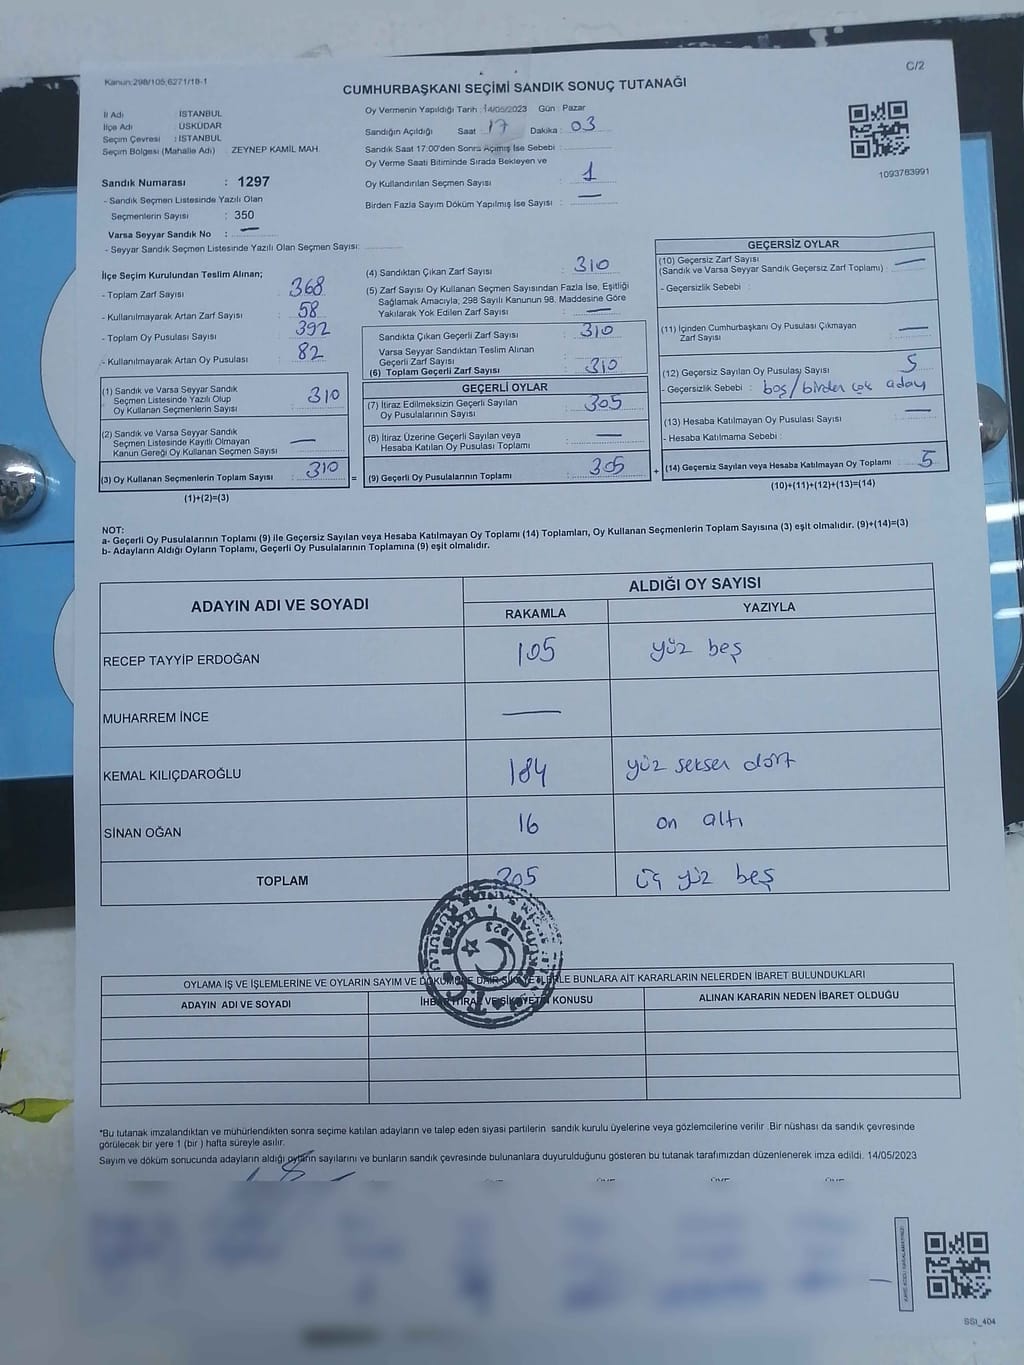 Kanun:298/105,6271/18-1
C/2
CUMHURBAŞKANI SEÇİMİ SANDIK SONUÇ TUTANAĞI
İl Adı : İSTANBUL
İlçe Adı : ÜSKÜDAR
Seçim Çevresi : İSTANBUL
Seçim Bölgesi (Mahalle Adı) : ZEYNEP KAMİL MAH.
Sandık Numarası : 1297
- Sandık Seçmen Listesinde Yazılı Olan
Seçmenlerin Sayısı : 350
Varsa Seyyar Sandık No : —
- Seyyar Sandık Seçmen Listesinde Yazılı Olan Seçmen Sayısı:
Oy Vermenin Yapıldığı Tarih : 14/05/2023 Gün : Pazar
Sandığın Açıldığı Saat : 17 Dakika : 03
Sandık Saat 17:00'den Sonra Açılmış İse Sebebi :
Oy Verme Saati Bitiminde Sırada Bekleyen ve
Oy Kullandırılan Seçmen Sayısı : 1
Birden Fazla Sayım Döküm Yapılmış İse Sayısı : —
1093783991
İlçe Seçim Kurulundan Teslim Alınan;
- Toplam Zarf Sayısı : 368
- Kullanılmayarak Artan Zarf Sayısı : 58
- Toplam Oy Pusulası Sayısı : 392
- Kullanılmayarak Artan Oy Pusulası : 82
(1) Sandık ve Varsa Seyyar Sandık
Seçmen Listesinde Yazılı Olup
Oy Kullanan Seçmenlerin Sayısı : 310
(2) Sandık ve Varsa Seyyar Sandık
Seçmen Listesinde Kayıtlı Olmayan
Kanun Gereği Oy Kullanan Seçmen Sayısı : —
(3) Oy Kullanan Seçmenlerin Toplam Sayısı : 310
(1)+(2)=(3)
=
(4) Sandıktan Çıkan Zarf Sayısı : 310
(5) Zarf Sayısı Oy Kullanan Seçmen Sayısından Fazla İse, Eşitliği
Sağlamak Amacıyla, 298 Sayılı Kanunun 98. Maddesine Göre
Yakılarak Yok Edilen Zarf Sayısı : —
Sandıkta Çıkan Geçerli Zarf Sayısı : 310
Varsa Seyyar Sandıktan Teslim Alınan
Geçerli Zarf Sayısı :
(6) Toplam Geçerli Zarf Sayısı : 310
GEÇERLİ OYLAR
(7) İtiraz Edilmeksizin Geçerli Sayılan
Oy Pusulalarının Sayısı : 305
(8) İtiraz Üzerine Geçerli Sayılan veya
Hesaba Katılan Oy Pusulası Toplamı : —
(9) Geçerli Oy Pusulalarının Toplamı : 305
+
GEÇERSİZ OYLAR
(10) Geçersiz Zarf Sayısı
(Sandık ve Varsa Seyyar Sandık Geçersiz Zarf Toplamı) : —
- Geçersizlik Sebebi :
(11) İçinden Cumhurbaşkanı Oy Pusulası Çıkmayan
Zarf Sayısı : —
(12) Geçersiz Sayılan Oy Pusulası Sayısı : 5
- Geçersizlik Sebebi : boş/birden çok aday
(13) Hesaba Katılmayan Oy Pusulası Sayısı : —
- Hesaba Katılmama Sebebi :
(14) Geçersiz Sayılan veya Hesaba Katılmayan Oy Toplamı : 5
(10)+(11)+(12)+(13)=(14)
NOT:
a- Geçerli Oy Pusulalarının Toplamı (9) ile Geçersiz Sayılan veya Hesaba Katılmayan Oy Toplamı (14) Toplamları, Oy Kullanan Seçmenlerin Toplam Sayısına (3) eşit olmalıdır. (9)+(14)=(3)
b- Adayların Aldığı Oyların Toplamı, Geçerli Oy Pusulalarının Toplamına (9) eşit olmalıdır.
ADAYIN ADI VE SOYADI ALDIĞI OY SAYISI
RAKAMLA YAZIYLA
RECEP TAYYİP ERDOĞAN 105 yüz beş
MUHARREM İNCE —
KEMAL KILIÇDAROĞLU 184 yüz seksen dört
SİNAN OĞAN 16 on altı
TOPLAM 305 üç yüz beş
T.C.
1923
OYLAMA İŞ VE İŞLEMLERİNE VE OYLARIN SAYIM VE DÖKÜMÜNE DAİR ŞİKAYETLERLE BUNLARA AİT KARARLARIN NELERDEN İBARET BULUNDUKLARI
ADAYIN ADI VE SOYADI İHBAR İTİRAZ VE ŞİKAYETİN KONUSU ALINAN KARARIN NEDEN İBARET OLDUĞU
*Bu tutanak imzalandıktan ve mühürlendikten sonra seçime katılan adayların ve talep eden siyasi partilerin sandık kurulu üyelerine veya gözlemcilerine verilir .Bir nüshası da sandık çevresinde
görülecek bir yere 1 (bir ) hafta süreyle asılır.
Sayım ve döküm sonucunda adayların aldığı oyların sayılarını ve bunların sandık çevresinde bulunanlara duyurulduğunu gösteren bu tutanak tarafımızdan düzenlenerek imza edildi. 14/05/2023
SSI_404